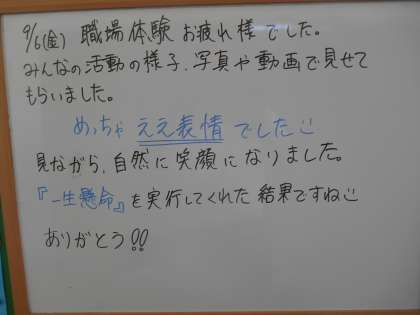 9/6(金) 職場体験 お疲れ様でした。
みんなの活動の様子、写真や動画で見せて
もらいました。
めっちゃ ええ表情 でした
見ながら、自然に笑顔になりました。
『一生懸命』を実行してくれた結果ですね
ありがとう!!